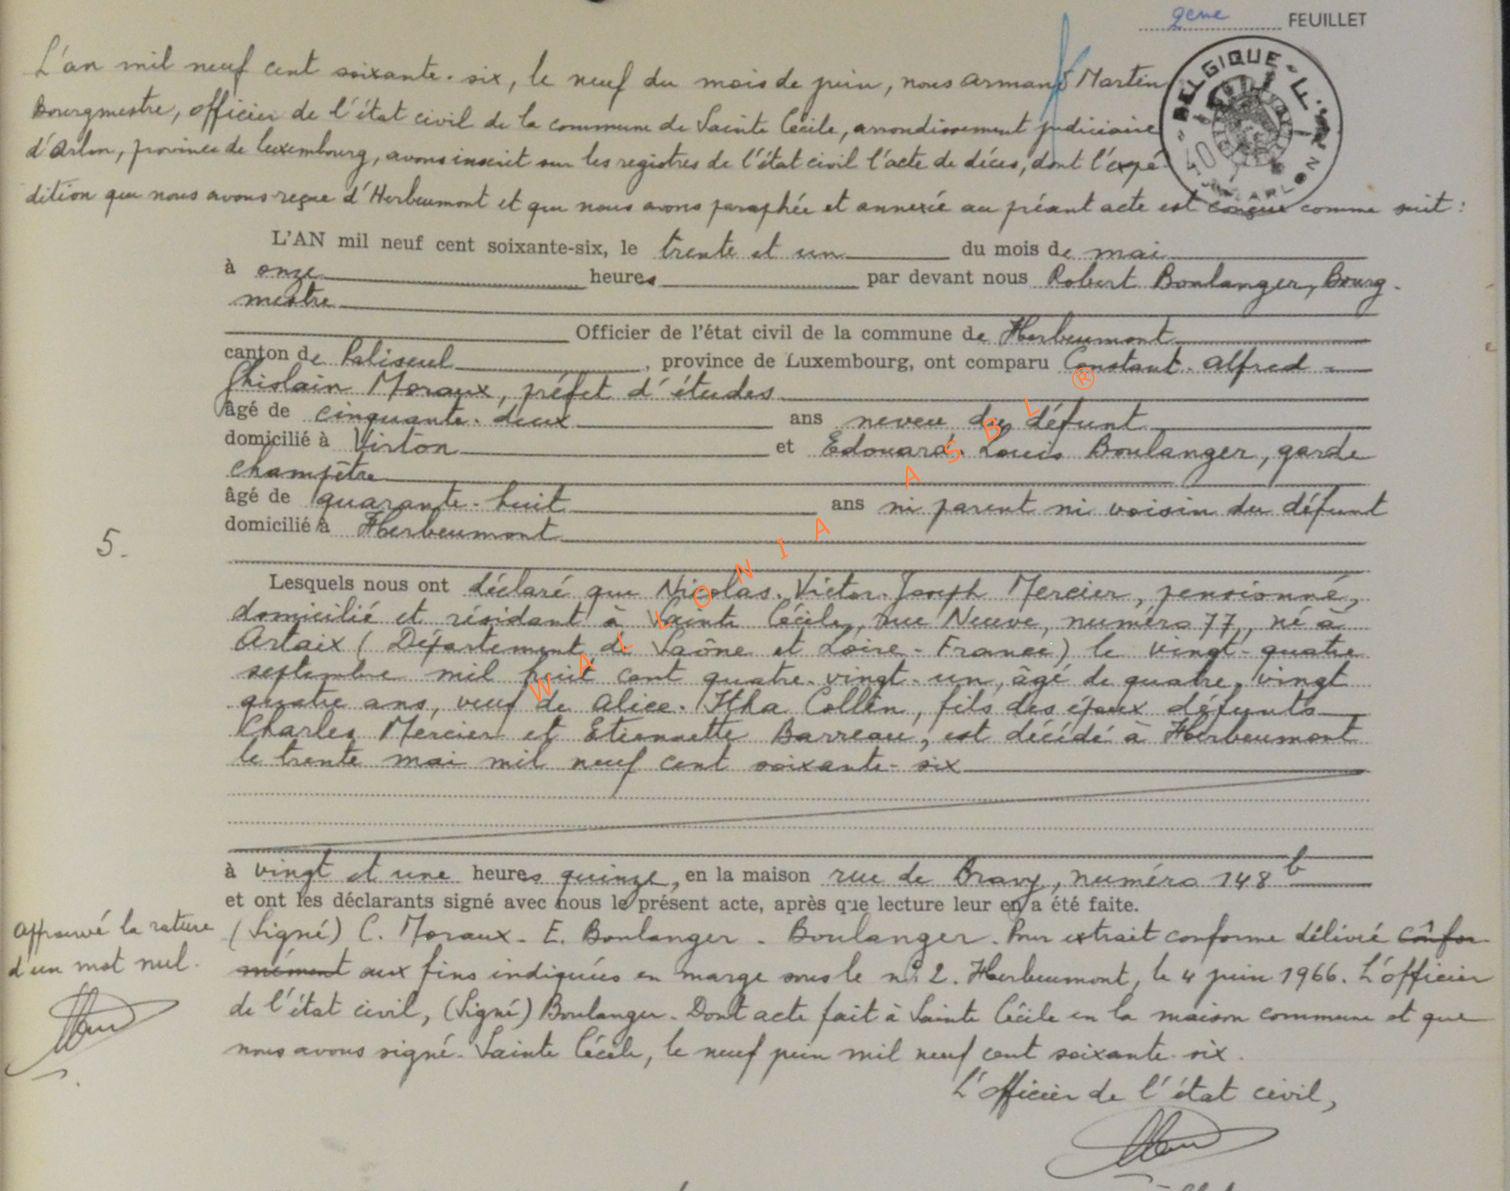 2eme FEUILLET
BELGIQUE
ARLON
L'an mil neuf cent soixante-six, le neuf du mois de juin, nous Armand Martin
Bourgmestre, officier de l'état civil de la commune de Sainte Cécile, arrondissement judiciaire
d'Arlon, province de Luxembourg, avons inscrit sur les registres de l'état civil l'acte de décès, dont l'expé
dition que nous avons reçue d'Herbeumont et que nous avons paraphée et annexée au présent acte est conçue comme suit :
L'AN mil neuf cent soixante-six, le trente et un du mois de mai
à onze heures par devant nous Robert Boulanger, Bourg-
mestre
Officier de l'état civil de la commune de Herbeumont
canton de Paliseul, province de Luxembourg, ont comparu Constant-Alfred-
Ghislain Moraux, préfet d'études
âgé de cinquante-deux ans neveu du défunt
domicilié à Virton et Edouard-Louis Boulanger, garde
champêtre
âgé de quarante-huit ans ni parent ni voisin du défunt
domicilié à Herbeumont
5.
Lesquels nous ont déclaré que Nicolas-Victor-Joseph Mercier, pensionné,
domicilié et résidant à Sainte Cécile, rue Neuve, numéro 77, né à
Artaix (Département de Saône et Loire-France) le vingt-quatre
septembre mil huit cent quatre-vingt-un, âgé de quatre-vingt
quatre ans, veuf de Alice-Itha Collin, fils des époux défunts
Charles Mercier et Etiennette Barreau, est décédé à Herbeumont
le trente mai mil neuf cent soixante-six
à vingt et une heures quinze, en la maison rue de Bravy, numéro 148 b
et ont les déclarants signé avec nous le présent acte, après que lecture leur en a été faite.
(Signé) C. Moraux - E. Boulanger - Boulanger. Pour extrait conforme délivré confor
mément aux fins indiquées en marge sous le n° 2. Herbeumont, le 4 juin 1966. L'officier
de l'état civil, (Signé) Boulanger. Dont acte fait à Sainte Cécile en la maison commune et que
nous avons signé. Sainte Cécile, le neuf juin mil neuf cent soixante-six.
L'officier de l'état civil,
Approuvé la rature
d'un mot nul.
WALLONIA ASBL ®